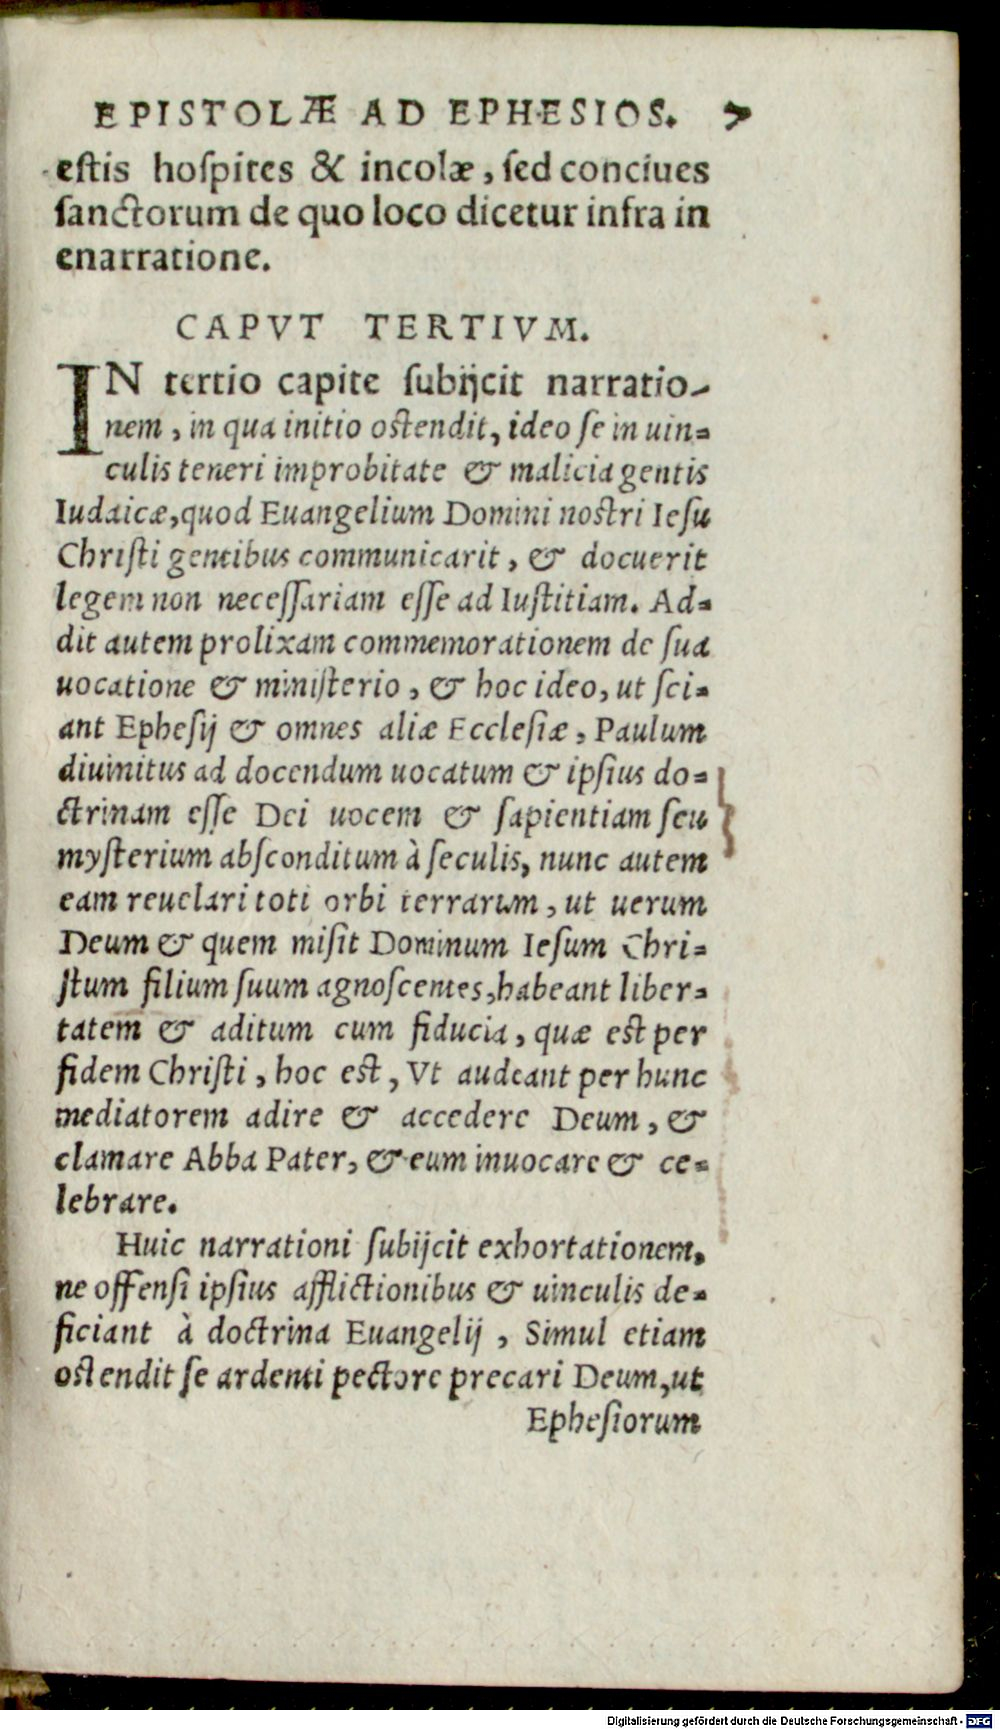 EPISTOLÆ AD EPHESIOS. 7
eſtis hoſpites & incolæ, ſed conciues
ſanctorum de quo loco dicetur infra in
enarratione.
CAPVT TERTIVM.
IN tertio capite ſubijcit narratio-
nem, in qua initio oſtendit, ideo ſe in uin=
culis teneri improbitate & malicia gentis
Iudaicæ, quod Euangelium Domini noſtri Ieſu
Chriſti gentibus communicarit, & docuerit
legem non neceſſariam eſſe ad Iuſtitiam. Ad=
dit autem prolixam commemorationem de ſua
uocatione & miniſterio, & hoc ideo, ut ſci=
ant Epheſij & omnes aliæ Eccleſiæ, Paulum
diuinitus ad docendum uocatum & ipſius do=
ctrinam eſſe Dei uocem & ſapientiam ſeu
myſterium abſconditum à ſeculis, nunc autem
eam reuelari toti orbi terrarum, ut uerum
Deum & quem miſit Dominum Ieſum Chri=
ſtum filium ſuum agnoſcentes, habeant liber=
tatem & aditum cum fiducia, quæ eſt per
fidem Chriſti, hoc eſt, Vt audeant per hunc
mediatorem adire & accedere Deum, &
clamare Abba Pater, & eum inuocare & ce=
lebrare.
Huic narrationi ſubijcit exhortationem,
ne offenſi ipſius afflictionibus & uinculis de=
ficiant à doctrina Euangelij, Simul etiam
oſtendit ſe ardenti pectore precari Deum, ut
Epheſiorum
Digitalisierung gefördert durch die Deutsche Forschungsgemeinschaft - DFG